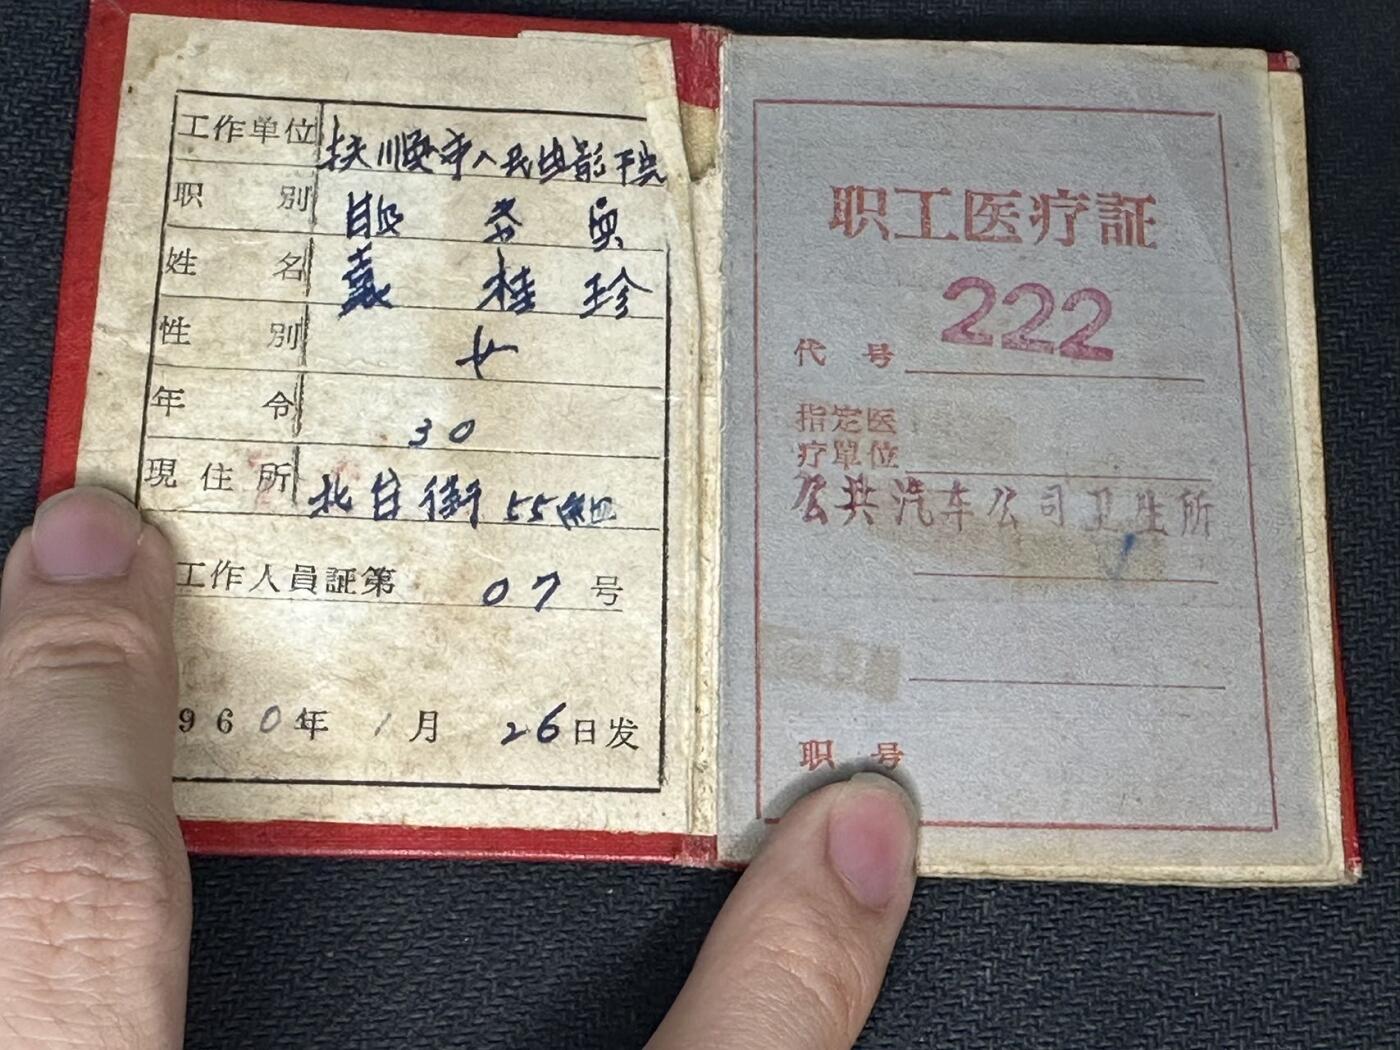 工作单位 抚顺市人民电影干兵
职别 服务员
姓名 桂珍
性别 女
年令 30
現住所 北台街 55组
工作人員証第 07 号
960年 1月 26日发
职工医疗証
代号 222
指定医
疗單位
公共汽车公司卫生所
职号